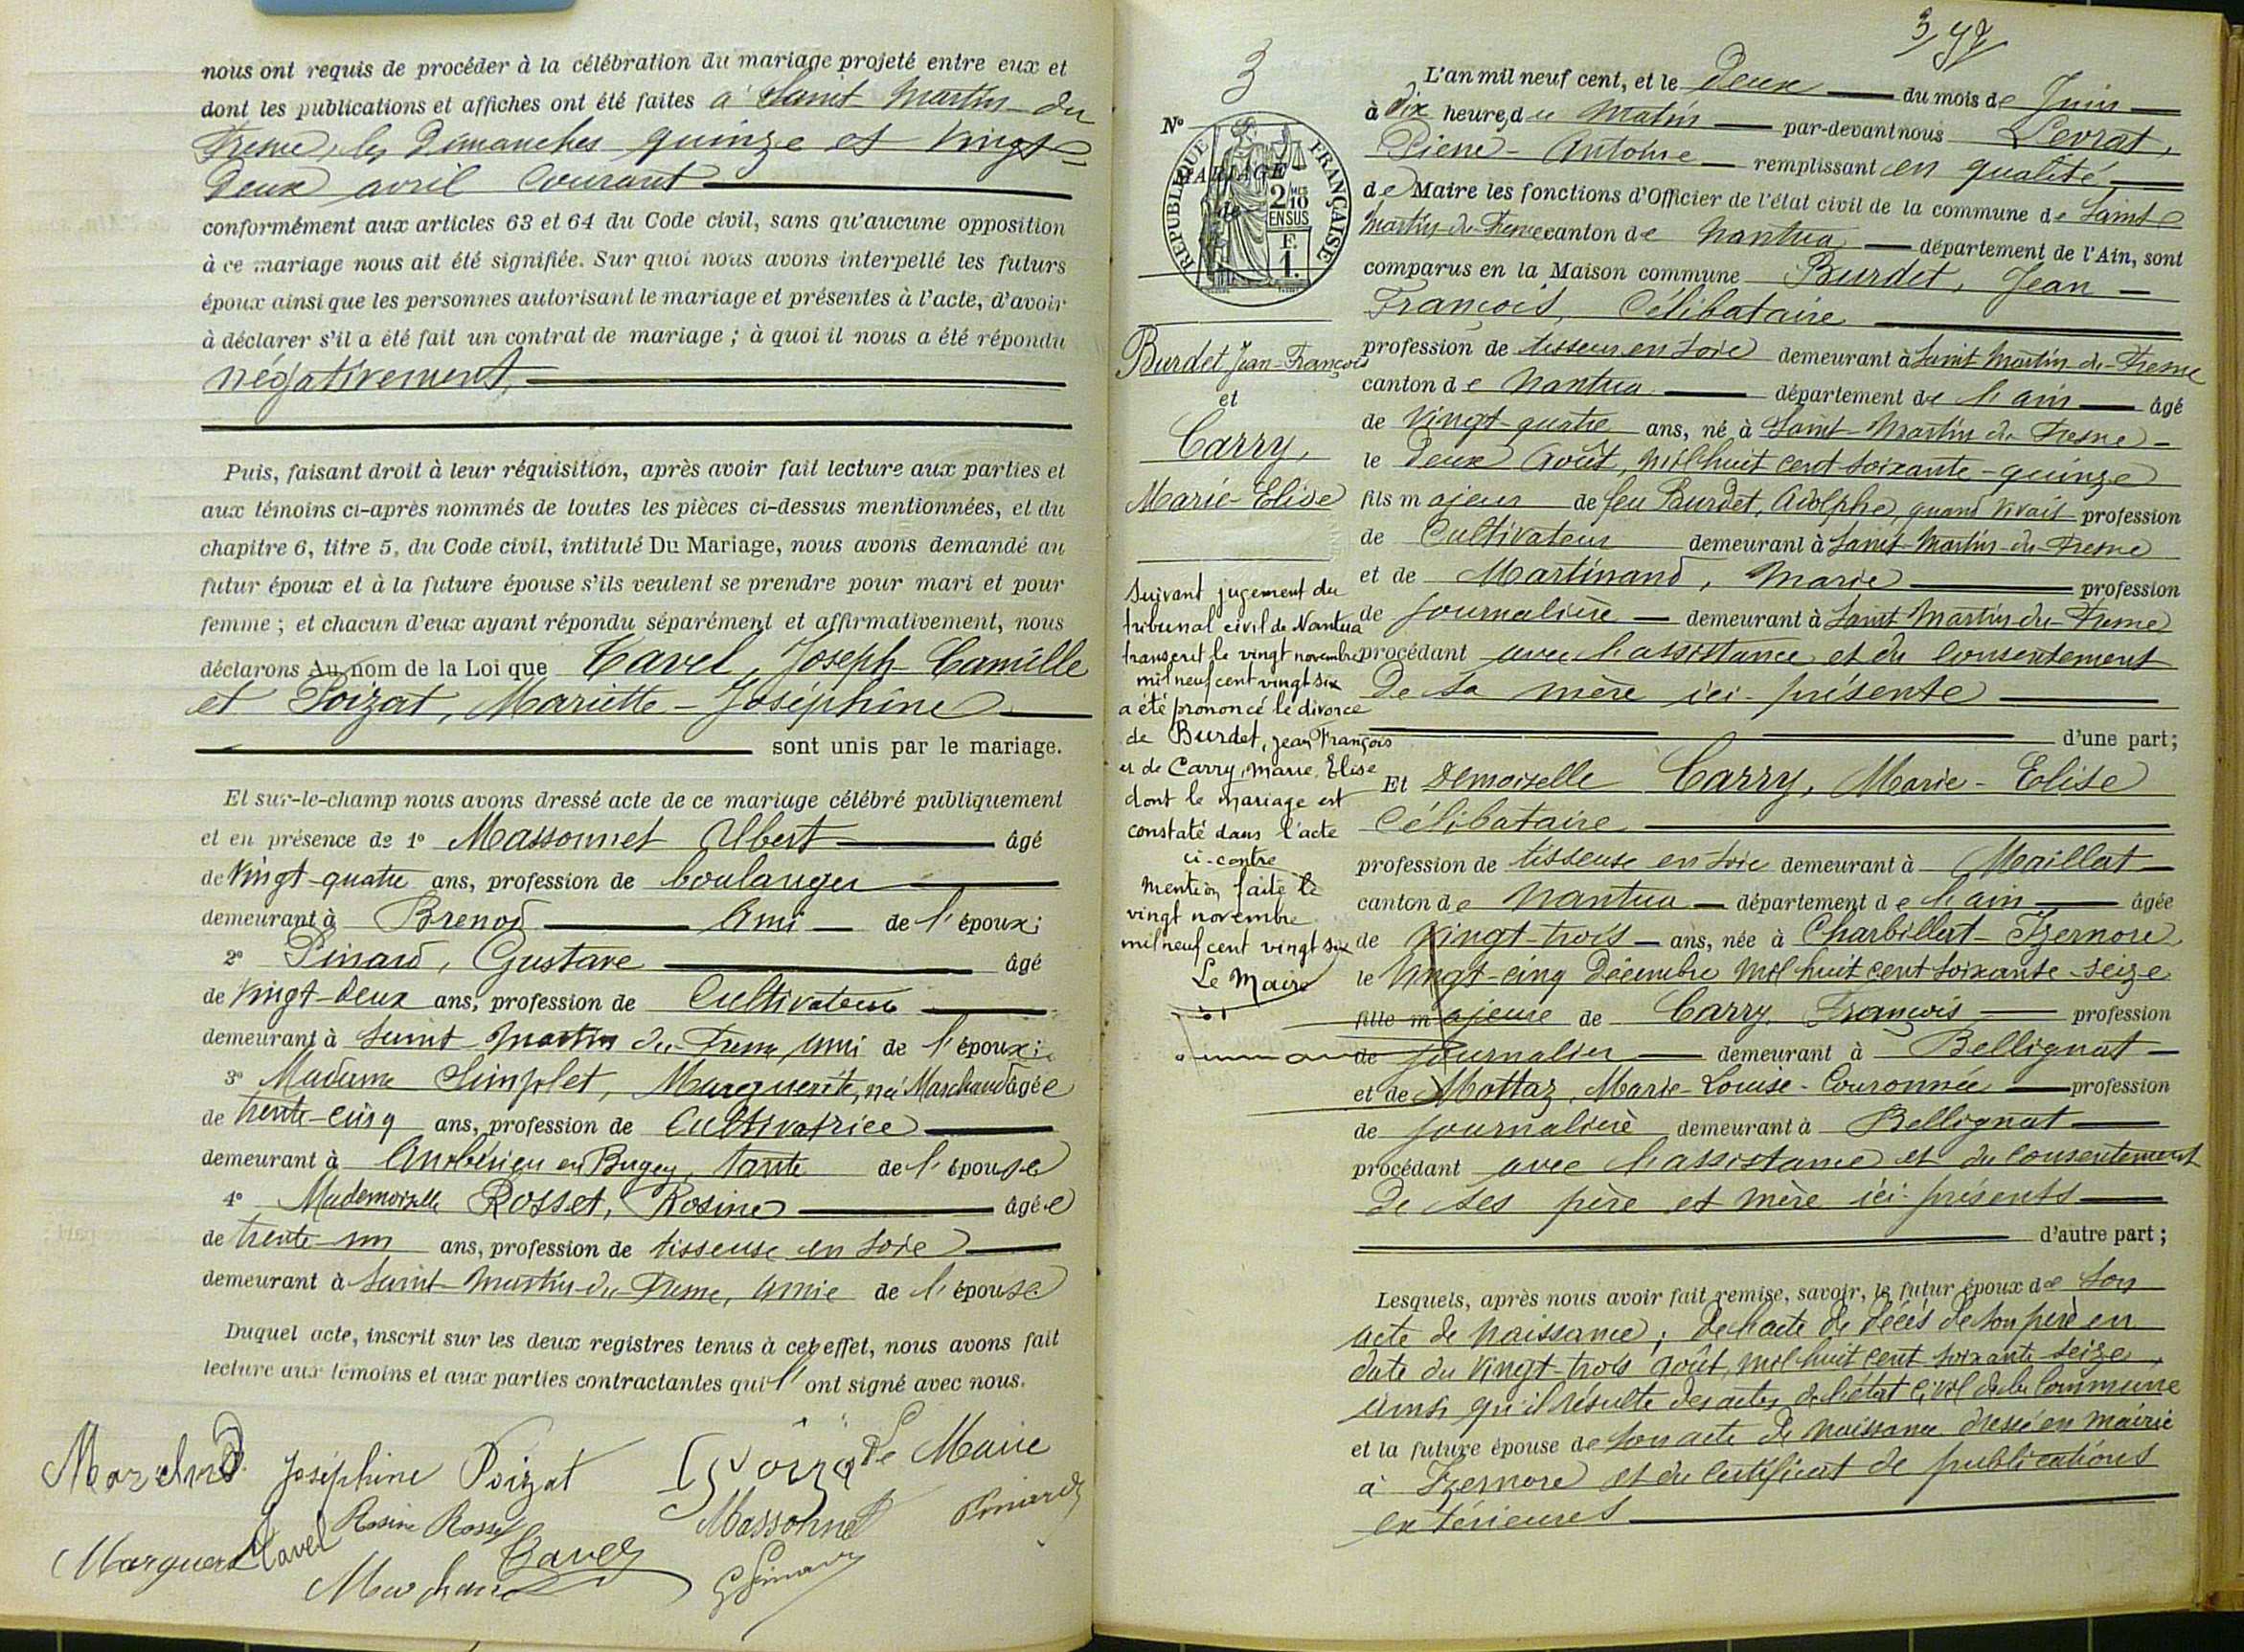 nous ont requis de procéder à la célébration du mariage projeté entre eux et
dont les publications et affiches ont été faites à Saint Martin du
Fresne, les Dimanches quinze et vingt
Deux avril Courant
conformément aux articles 63 et 64 du Code civil, sans qu'aucune opposition
à ce mariage nous ait été signifiée. Sur quoi nous avons interpellé les futurs
époux ainsi que les personnes autorisant le mariage et présentes à l'acte, d'avoir
à déclarer s'il a été fait un contrat de mariage ; à quoi il nous a été répondu
négativement,
Puis, faisant droit à leur réquisition, après avoir fait lecture aux parties et
aux témoins ci-après nommés de toutes les pièces ci-dessus mentionnées, et du
chapitre 6, titre 5, du Code civil, intitulé Du Mariage, nous avons demandé au
futur époux et à la future épouse s'ils veulent se prendre pour mari et pour
femme ; et chacun d'eux ayant répondu séparément et affirmativement, nous
déclarons Au nom de la Loi que Tavel, Joseph Camille
et Poizat, Mariette - Joséphine
sont unis par le mariage.
Et sur-le-champ nous avons dressé acte de ce mariage célébré publiquement
et en présence de 1° Massonnet Albert âgé
de Vingt-quatre ans, profession de boulanger
demeurant à Brenod Ami de l'époux ;
2° Pinard, Gustave âgé
de Vingt-Deux ans, profession de Cultivateur
demeurant à Saint Martin du Fresne ami de l'époux ;
3° Madame Simplet, Marguerite, née Marchand âgée
de trente-cinq ans, profession de Cultivatrice
demeurant à Ambérieu en Bugey, tante de l'épouse
4° Mademoiselle Rosset, Rosine âgée
de trente-un ans, profession de tisseuse en soie
demeurant à Saint-Martin-du-Fresne, amie de l'épouse
Duquel acte, inscrit sur les deux registres tenus à cet effet, nous avons fait
lecture aux témoins et aux parties contractantes qui l'ont signé avec nous.
Joséphine Poizat
Le Maire
Rosine Rosset
Massonnet
Tavel
G Pinard
3
N°
MARIAGE
de
RÉPUBLIQUE FRANÇAISE
2/10 EN SUS
F. 1.
Burdet Jean-François
et
Carry,
Marie-Elise
Suivant jugement du
tribunal civil de Nantua
transcrit le vingt novembre
mil neuf cent vingt six
a été prononcé le divorce
de Burdet, Jean François
et de Carry, Marie Elise
dont le mariage est
constaté dans l'acte
ci-contre
Mention faite le
vingt novembre
mil neuf cent vingt six
Le Maire
L'an mil neuf cent, et le Deux du mois de Juin
à Dix heures du Matin par-devant nous Levrat,
Pierre - Antoine remplissant en qualité
de Maire les fonctions d'Officier de l'état civil de la commune de Saint
Martin-du-Fresne canton de Nantua département de l'Ain, sont
comparus en la Maison commune Burdet, Jean
François, Célibataire
profession de tisseur en soie demeurant à Saint Martin-du-Fresne
canton de Nantua département de l'ain âgé
de Vingt-quatre ans, né à Saint-Martin du Fresne
le Deux Août, mil huit cent soixante-quinze
fils majeur de feu Burdet, Adolphe, quand vivait profession
de Cultivateur demeurant à Saint-Martin-du-Fresne
et de Martinand, Marie profession
de journalière demeurant à Saint Martin-du-Fresne
procédant avec l'assistance et du consentement
De sa mère ici-présente
d'une part ;
Et Demoiselle Carry, Marie-Elise
Célibataire
profession de tisseuse en soie demeurant à Maillat
canton de Nantua département de l'ain âgée
de Vingt-trois ans, née à Charbillat-Izernore
le Vingt-cinq Décembre mil huit cent soixante-seize
fille majeure de Carry François profession
de journalier demeurant à Bellignat
et de Mottaz, Marie-Louise-Couronnée profession
de journalière demeurant à Bellignat
procédant avec l'assistance et du consentement
De ses père et mère ici-présents
d'autre part ;
Lesquels, après nous avoir fait remise, savoir, le futur époux de son
acte de naissance ; de l'acte de Décès de son père en
date du Vingt-trois août, mil huit cent soixante-seize,
ainsi qu'il résulte des actes de l'état civil de la Commune
et la future épouse de son acte de naissance dressé en mairie
à Izernore et du certificat de publications
extérieures